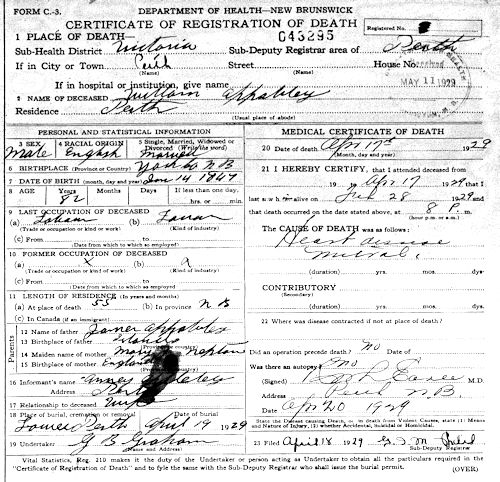 FORM C.-3. DEPARTMENT OF HEALTH—NEW BRUNSWICK
CERTIFICATE OF REGISTRATION OF DEATH
1 PLACE OF DEATH— 043295 Registered No.
Sub-Health District Victoria Sub-Deputy Registrar area of Perth
If in City or Town Perth Street House No.
(Name) (Name)
MAY 11 1929
If in hospital or institution, give name
2 NAME OF DECEASED William Appabley
Residence Perth
(Usual place of abode)
PERSONAL AND STATISTICAL INFORMATION
3 SEX 4 RACIAL ORIGIN 5 Single, Married, Widowed or Divorced (Write the word)
Male English Married
6 BIRTHPLACE (Province or Country) York Co N B
7 DATE OF BIRTH (month, day and year) Jan 14 1847
8 AGE Years Months Days If less than one day,
82 hrs. or min.
9 LAST OCCUPATION OF DECEASED
(a) (b)
(Trade or occupation or kind of work) (Kind of industry)
(c) From to
(Date from which to which so employed)
10 FORMER OCCUPATION OF DECEASED
(a) x (b)
(Trade or occupation or kind of work) (Kind of industry)
(c) From to
(Date from which to which so employed)
11 LENGTH OF RESIDENCE (In years and months)
(a) At place of death 55 (b) In province N B
(c) In Canada (if an immigrant)
Parents
12 Name of father James Appabley
13 Birthplace of father
14 Maiden name of mother Mary
15 Birthplace of mother England
16 Informant's name
Address Perth
17 Relationship to deceased
18 Place of burial, cremation or removal Date of burial
Lower Perth April 19 1929
19 Undertaker G B Graham
MEDICAL CERTIFICATE OF DEATH
20 Date of death Apr 17th 1929
(Month, day and year)
21 I HEREBY CERTIFY, that I attended deceased
from 19 to Apr 17 1929 that I
last saw h alive on 28 1929 and
that death occurred on the date stated above at 8 P. m.
(hour p.m. or a.m.)
The CAUSE OF DEATH was as follows:
Heart disease
Mitral
(duration) yrs. mos. dys.
CONTRIBUTORY
(Secondary)
(duration) yrs. mos. dys.
22 Where was disease contracted if not at place of death?
Did an operation precede death? No Date of
Was there an autopsy? No
(Signed) M.D.
Address Perth N.B.
Date Apr 20 1929
State the Disease causing Death, or if death from Violent Causes, state (1) Means and Nature of Injury, (2) whether Accidental, Suicidal or Homicidal.
23 Filed April 18 1929
Sub-Deputy Registrar
Vital Statistics, Reg. 210 makes it the duty of the Undertaker or person acting as Undertaker to obtain all the particulars required in the
"Certificate of Registration of Death" and to fyle the same with the Sub-Deputy Registrar who shall issue the burial permit. (OVER)